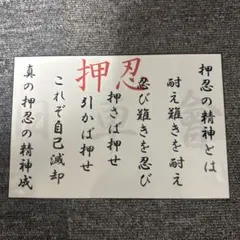 押忍
押忍の精神とは
耐え難きを耐え
忍び難きを忍び
押さば押せ
引かば押せ
これぞ自己滅却
真の押忍の精神成